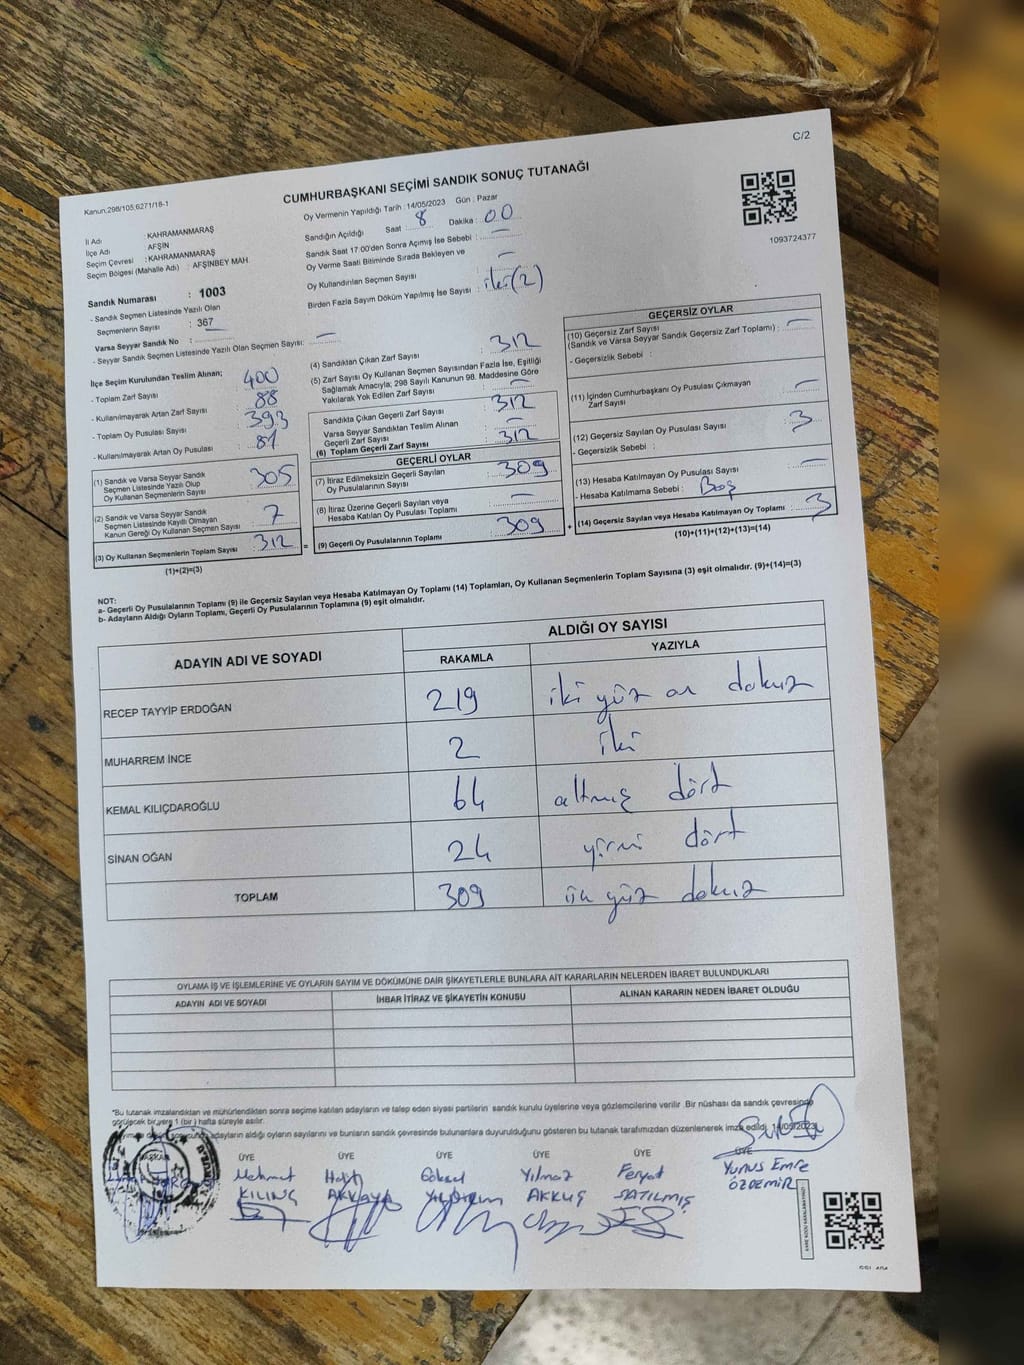 C/2
Kanun:298/105,6271/18-1
CUMHURBAŞKANI SEÇİMİ SANDIK SONUÇ TUTANAĞI
1093724377
İl Adı : KAHRAMANMARAŞ
İlçe Adı : AFŞİN
Seçim Çevresi : KAHRAMANMARAŞ
Seçim Bölgesi (Mahalle Adı) : AFŞİNBEY MAH.
Oy Vermenin Yapıldığı Tarih : 14/05/2023 Gün : Pazar
Sandığın Açıldığı Saat : 8 Dakika : 00
Sandık Saat 17:00'den Sonra Açımış İse Sebebi : —
Oy Verme Saati Bitiminde Sırada Bekleyen ve
Oy Kullandırılan Seçmen Sayısı : —
Birden Fazla Sayım Döküm Yapılmış İse Sayısı : iki (2)
Sandık Numarası : 1003
- Sandık Seçmen Listesinde Yazılı Olan
Seçmenlerin Sayısı : 367
Varsa Seyyar Sandık No :
- Seyyar Sandık Seçmen Listesinde Yazılı Olan Seçmen Sayısı: —
İlçe Seçim Kurulundan Teslim Alınan;
- Toplam Zarf Sayısı : 400
- Kullanılmayarak Artan Zarf Sayısı : 88
- Toplam Oy Pusulası Sayısı : 393
- Kullanılmayarak Artan Oy Pusulası : 81
(1) Sandık ve Varsa Seyyar Sandık
Seçmen Listesinde Yazılı Olup
Oy Kullanan Seçmenlerin Sayısı : 305
(2) Sandık ve Varsa Seyyar Sandık
Seçmen Listesinde Kayıtlı Olmayan
Kanun Gereği Oy Kullanan Seçmen Sayısı : 7
(3) Oy Kullanan Seçmenlerin Toplam Sayısı : 312
(1)+(2)=(3)
(4) Sandıktan Çıkan Zarf Sayısı : 312
(5) Zarf Sayısı Oy Kullanan Seçmen Sayısından Fazla İse, Eşitliği
Sağlamak Amacıyla; 298 Sayılı Kanunun 98. Maddesine Göre
Yakılarak Yok Edilen Zarf Sayısı : —
Sandıkta Çıkan Geçerli Zarf Sayısı : 312
Varsa Seyyar Sandıktan Teslim Alınan
Geçerli Zarf Sayısı : —
(6) Toplam Geçerli Zarf Sayısı : 312
GEÇERLİ OYLAR
(7) İtiraz Edilmeksizin Geçerli Sayılan
Oy Pusulalarının Sayısı : 309
(8) İtiraz Üzerine Geçerli Sayılan veya
Hesaba Katılan Oy Pusulası Toplamı : —
= (9) Geçerli Oy Pusulalarının Toplamı : 309 +
GEÇERSİZ OYLAR
(10) Geçersiz Zarf Sayısı
(Sandık ve Varsa Seyyar Sandık Geçersiz Zarf Toplamı) : —
- Geçersizlik Sebebi :
(11) İçinden Cumhurbaşkanı Oy Pusulası Çıkmayan
Zarf Sayısı : —
(12) Geçersiz Sayılan Oy Pusulası Sayısı : 3
- Geçersizlik Sebebi :
(13) Hesaba Katılmayan Oy Pusulası Sayısı : —
- Hesaba Katılmama Sebebi : Boş
(14) Geçersiz Sayılan veya Hesaba Katılmayan Oy Toplamı : 3
(10)+(11)+(12)+(13)=(14)
NOT:
a- Geçerli Oy Pusulalarının Toplamı (9) ile Geçersiz Sayılan veya Hesaba Katılmayan Oy Toplamı (14) Toplamları, Oy Kullanan Seçmenlerin Toplam Sayısına (3) eşit olmalıdır. (9)+(14)=(3)
b- Adayların Aldığı Oyların Toplamı, Geçerli Oy Pusulalarının Toplamına (9) eşit olmalıdır.
ADAYIN ADI VE SOYADI
ALDIĞI OY SAYISI
RAKAMLA YAZIYLA
RECEP TAYYİP ERDOĞAN 219 iki yüz on dokuz
MUHARREM İNCE 2 iki
KEMAL KILIÇDAROĞLU 64 altmış dört
SİNAN OĞAN 24 yirmi dört
TOPLAM 309 üç yüz dokuz
OYLAMA İŞ VE İŞLEMLERİNE VE OYLARIN SAYIM VE DÖKÜMÜNE DAİR ŞİKAYETLERLE BUNLARA AİT KARARLARIN NELERDEN İBARET BULUNDUKLARI
ADAYIN ADI VE SOYADI İHBAR İTİRAZ VE ŞİKAYETİN KONUSU ALINAN KARARIN NEDEN İBARET OLDUĞU
*Bu tutanak imzalandıktan ve mühürlendikten sonra seçime katılan adayların ve talep eden siyasi partilerin sandık kurulu üyelerine veya gözlemcilerine verilir .Bir nüshası da sandık çevresinde
görülecek bir yere 1 (bir ) hafta süreyle asılır.
adayların aldığı oyların sayılarını ve bunların sandık çevresinde bulunanlara duyurulduğunu gösteren bu tutanak tarafımızdan düzenlenerek imza edildi. 14/05/2023
BAŞKAN ÜYE ÜYE ÜYE ÜYE ÜYE ÜYE
Mehmet KILINÇ
AKKAYA
Göksel YILDIRIM
Yılmaz AKKUŞ
Feryat SATILMIŞ
Yunus Emre ÖZDEMİR